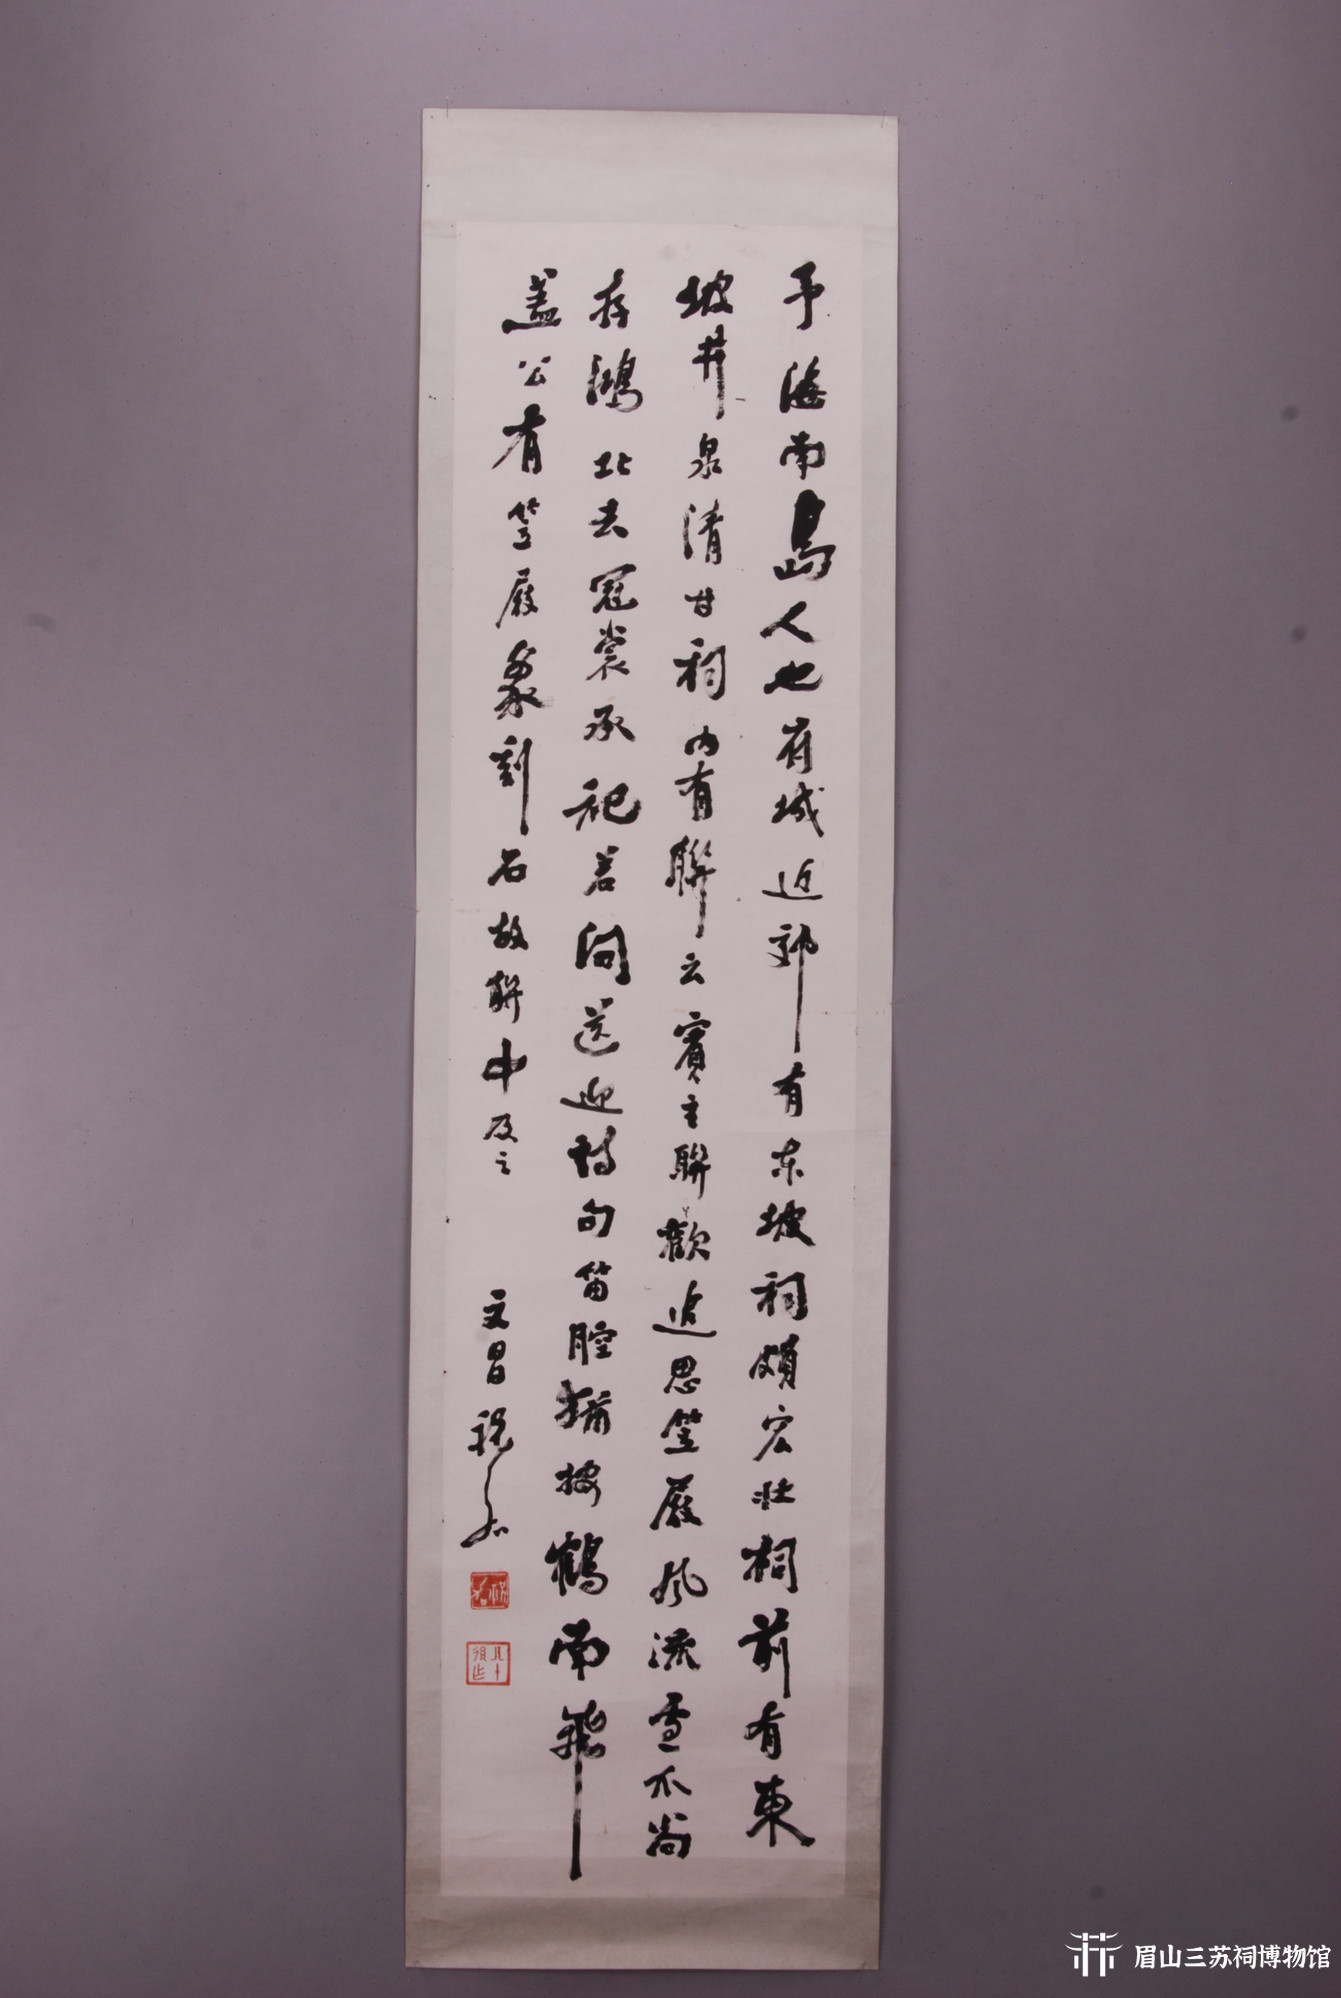 予海南島人也府城近郊有东坡祠頗宏壮祠前有東
坡井泉清甘祠内有聯云賓主聯歡追思笠屐風流雪爪尚
存鴻北去冠裳承祀若问送迎詩句笛腔猶按鶴南飛
盖公有笠屐象刻石故聯中及之
文昌祝嘉
祝嘉
八十後作
眉山三苏祠博物馆